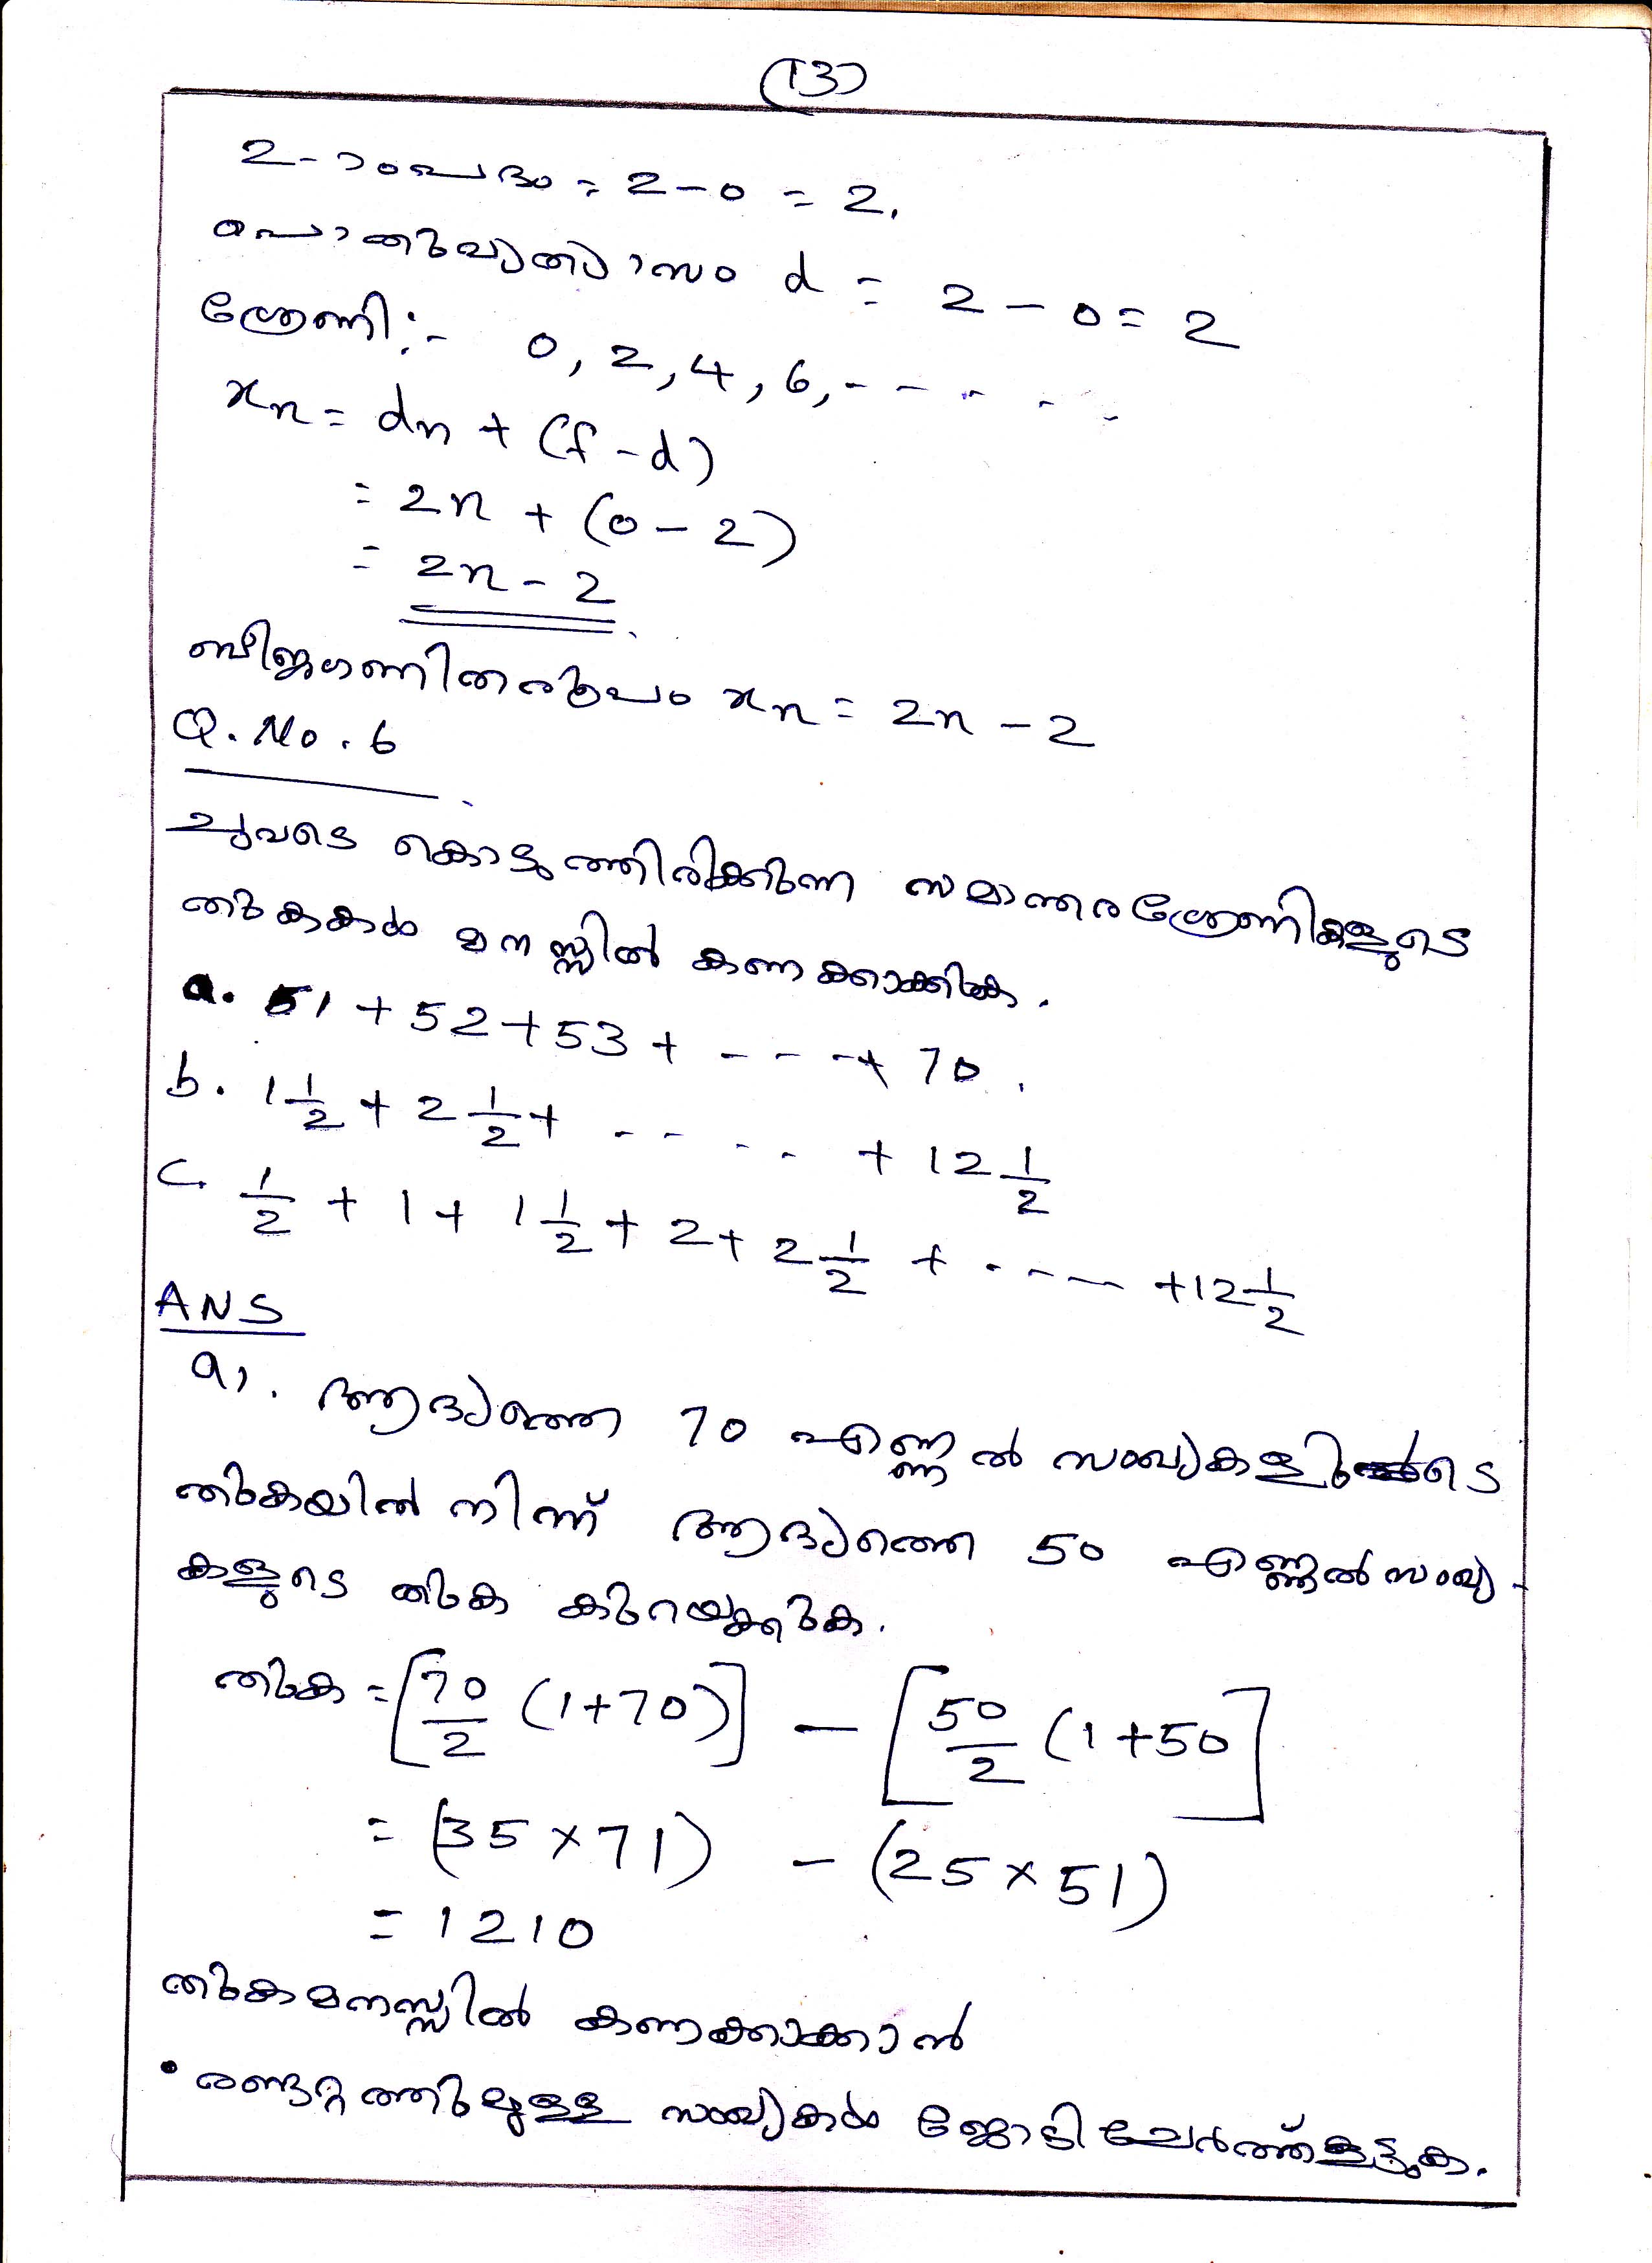 (13)
2-ാംപദം = 2-0 = 2.
പൊതുവ്യത്യാസം d = 2 - 0 = 2
ശ്രേണി:- 0, 2, 4, 6, - - - - -
xn = dn + (f-d)
= 2n + (0-2)
= 2n - 2
ബീജഗണിതരൂപം xn = 2n - 2
Q. No. 6
ചുവടെ കൊടുത്തിരിക്കുന്ന സമാന്തരശ്രേണികളുടെ
തുകകൾ മനസ്സിൽ കണക്കാക്കുക.
a. 51 + 52 + 53 + - - - + 70.
b. 1 1/2 + 2 1/2 + - - - - + 12 1/2
c. 1/2 + 1 + 1 1/2 + 2 + 2 1/2 + - - - - + 12 1/2
ANS
a). ആദ്യത്തെ 70 എണ്ണൽ സംഖ്യകളുടെ
തുകയിൽ നിന്ന് ആദ്യത്തെ 50 എണ്ണൽസംഖ്യ-
കളുടെ തുക കുറയ്ക്കുക.
തുക = [70/2 (1+70)] - [50/2 (1+50]
= (35 × 71) - (25 × 51)
= 1210
തുക മനസ്സിൽ കണക്കാക്കാൻ
• രണ്ടറ്റത്തുമുള്ള സംഖ്യകൾ ജോടി ചേർത്ത് കൂട്ടുക.